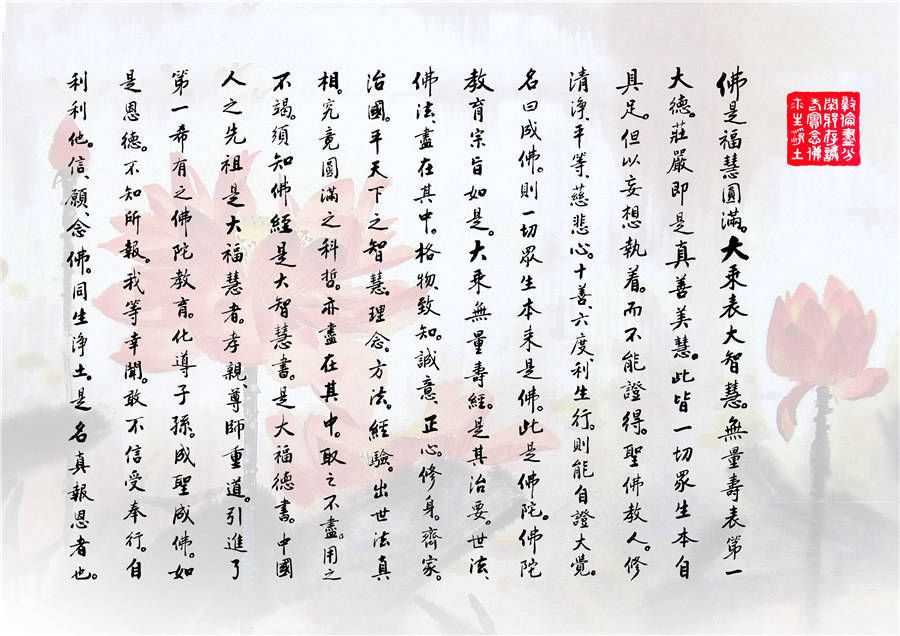 敦倫盡分
閑邪存誠
老實念佛
求生淨土
佛是福慧圓滿。大乘表大智慧。無量壽表第一
大德。莊嚴即是真善美慧。此皆一切眾生本自
具足。但以妄想執着。而不能證得。聖佛教人。修
清淨、平等、慈悲心。十善、六度、利生行。則能自證大覺。
名曰成佛。則一切眾生本來是佛。此是佛陀。佛陀
教育宗旨如是。大乘無量壽經。是其治要。世法、
佛法、盡在其中。格物、致知。誠意、正心。修身。齊家。
治國。平天下之智慧。理念。方法。經驗。出世法真
相。究竟圓滿之科哲。亦盡在其中。取之不盡。用之
不竭。須知佛經是大智慧書。是大福德書。中國
人之先祖是大福慧者。孝親尊師重道。引進了
第一希有之佛陀教育。化導子孫。成聖成佛。如
是恩德。不知所報。我等幸聞。敢不信受奉行。自
利利他。信、願、念佛。同生淨土。是名真報恩者也。